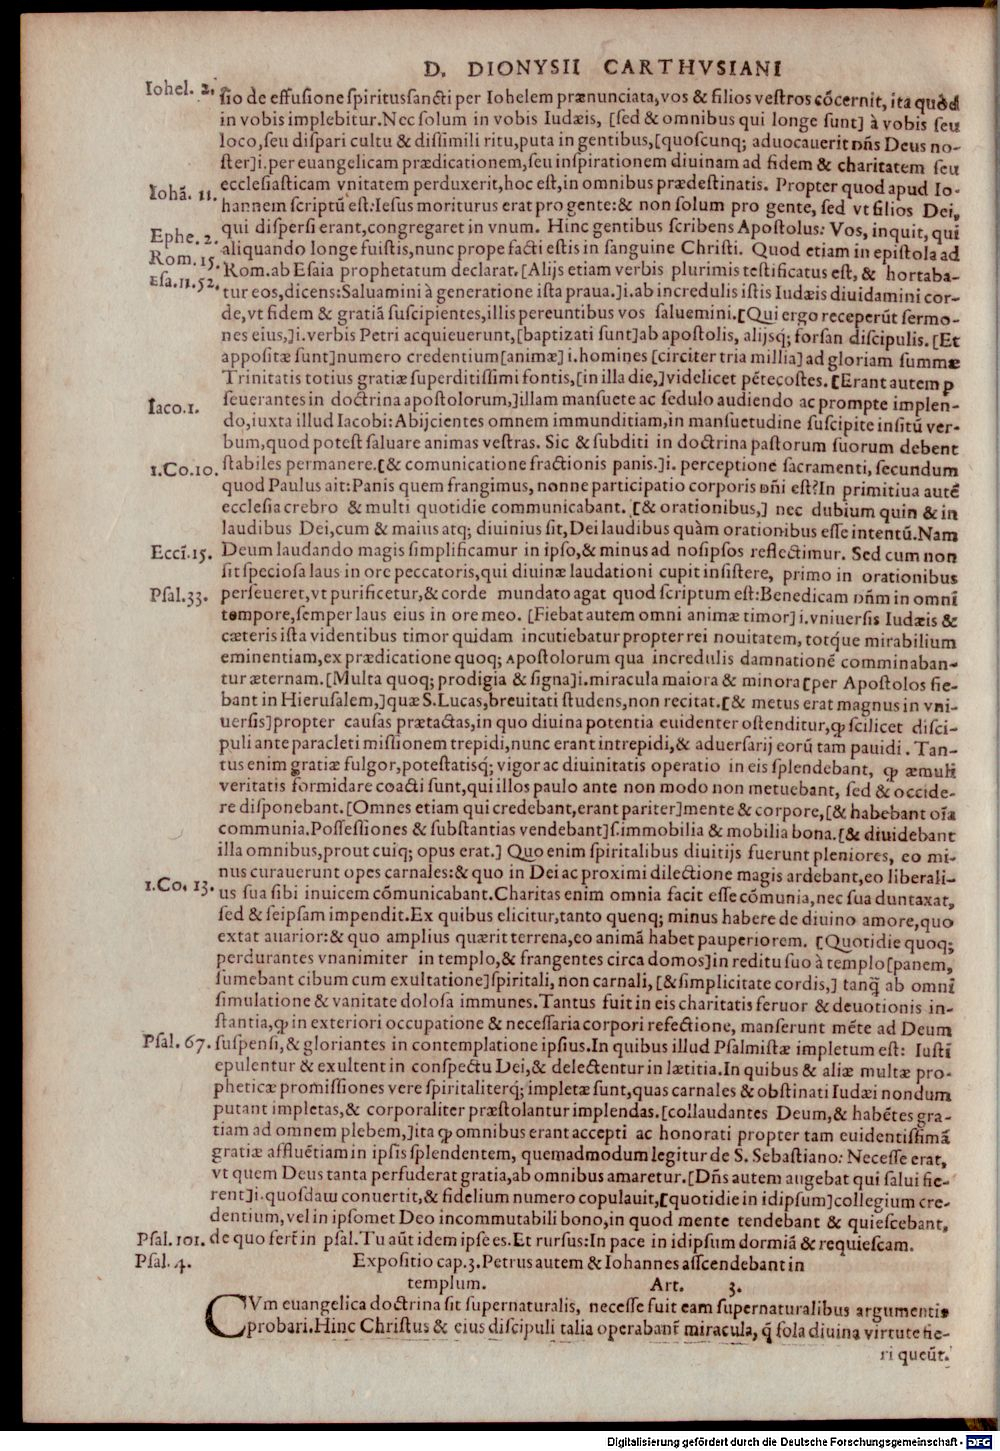 D. DIONYSII CARTHVSIANI
Iohel. 2. sio de effusione spiritussancti per Iohelem prænunciata, vos & filios vestros cõcernit, ita quod
in vobis implebitur. Nec solum in vobis Iudæis, [sed & omnibus qui longe sunt] à vobis seu
loco, seu dispari cultu & dissimili ritu, puta in gentibus, [quoscunq; aduocauerit dñs Deus no-
ster] i. per euangelicam prædicationem, seu inspirationem diuinam ad fidem & charitatem seu
Iohã. 11. ecclesiasticam vnitatem perduxerit, hoc est, in omnibus prædestinatis. Propter quod apud Io-
hannem scriptũ est: Iesus moriturus erat pro gente: & non solum pro gente, sed vt filios Dei,
Ephe. 2. qui dispersi erant, congregaret in vnum. Hinc gentibus scribens Apostolus: Vos, inquit, qui
Rom. 15. aliquando longe fuistis, nunc prope facti estis in sanguine Christi. Quod etiam in epistola ad
Esa. 11. 52. Rom. ab Esaia prophetatum declarat. [Alijs etiam verbis plurimis testificatus est, & hortaba-
tur eos, dicens: Saluamini à generatione ista praua.] i. ab incredulis istis Iudæis diuidamini cor-
de, vt fidem & gratiã suscipientes, illis pereuntibus vos saluemini. [Qui ergo receperũt sermo-
nes eius,] i. verbis Petri acquieuerunt, [baptizati sunt] ab apostolis, alijsq; forsan discipulis. [Et
appositæ sunt] numero credentium [animæ] i. homines [circiter tria millia] ad gloriam summæ
Trinitatis totius gratiæ superditissimi fontis, [in illa die,] videlicet pẽtecostes. [Erant autem ꝑ
seuerantes in doctrina apostolorum,] illam mansuete ac sedulo audiendo ac prompte implen-
Iaco. 1. do, iuxta illud Iacobi: Abijcientes omnem immunditiam, in mansuetudine suscipite insitũ ver-
bum, quod potest saluare animas vestras. Sic & subditi in doctrina pastorum suorum debent
1. Co. 10. stabiles permanere. [& comunicatione fractionis panis.] i. perceptione sacramenti, secundum
quod Paulus ait: Panis quem frangimus, nonne participatio corporis dñi est? In primitiua autẽ
ecclesia crebro & multi quotidie communicabant. [& orationibus,] nec dubium quin & in
laudibus Dei, cum & maius atq; diuinius sit, Dei laudibus quàm orationibus esse intentũ. Nam
Eccĩ. 15. Deum laudando magis simplificamur in ipso, & minus ad nosipsos reflectimur. Sed cum non
sit speciosa laus in ore peccatoris, qui diuinæ laudationi cupit insistere, primo in orationibus
Psal. 33. perseueret, vt purificetur, & corde mundato agat quod scriptum est: Benedicam dñm in omnĩ
tempore, semper laus eius in ore meo. [Fiebat autem omni animæ timor] i. vniuersis Iudæis &
cæteris ista videntibus timor quidam incutiebatur propter rei nouitatem, totq́ue mirabilium
eminentiam, ex prædicatione quoq; Apostolorum qua incredulis damnationẽ comminaban-
tur æternam. [Multa quoq; prodigia & signa] i. miracula maiora & minora [per Apostolos fie-
bant in Hierusalem,] quæ S. Lucas, breuitati studens, non recitat. [& metus erat magnus in vni-
uersis] propter causas prætactas, in quo diuina potentia euidenter ostenditur, ꝙ scilicet disci-
puli ante paracleti missionem trepidi, nunc erant intrepidi, & aduersarij eorũ tam pauidi. Tan-
tus enim gratiæ fulgor, potestatisq́; vigor ac diuinitatis operatio in eis splendebant, ꝙ æmuli
veritatis formidare coacti sunt, qui illos paulo ante non modo non metuebant, sed & occide-
re disponebant. [Omnes etiam qui credebant, erant pariter] mente & corpore, [& habebant oĩa
communia. Possessiones & substantias vendebant] s. immobilia & mobilia bona. [& diuidebant
illa omnibus, prout cuiq; opus erat.] Quo enim spiritalibus diuitijs fuerunt pleniores, eo mi-
nus curauerunt opes carnales: & quo in Dei ac proximi dilectione magis ardebant, eo liberali-
1. Co. 13. us sua sibi inuicem cõmunicabant. Charitas enim omnia facit esse cõmunia, nec sua duntaxat,
sed & seipsam impendit. Ex quibus elicitur, tanto quenq; minus habere de diuino amore, quo
extat auarior: & quo amplius quærit terrena, eo animã habet pauperiorem. [Quotidie quoq;
perdurantes vnanimiter in templo, & frangentes circa domos] in reditu suo à templo [panem,
sumebant cibum cum exultatione] spiritali, non carnali, [& simplicitate cordis,] tanq̃ ab omni
simulatione & vanitate dolosa immunes. Tantus fuit in eis charitatis feruor & deuotionis in-
stantia, ꝙ in exteriori occupatione & necessaria corpori refectione, manserunt mẽte ad Deum
Psal. 67. suspensi, & gloriantes in contemplatione ipsius. In quibus illud Psalmistæ impletum est: Iusti
epulentur & exultent in conspectu Dei, & delectentur in lætitia. In quibus & aliæ multæ pro-
pheticæ promissiones vere spiritaliterq́; impletæ sunt, quas carnales & obstinati Iudæi nondum
putant impletas, & corporaliter præstolantur implendas. [collaudantes Deum, & habẽtes gra-
tiam ad omnem plebem,] ita ꝙ omnibus erant accepti ac honorati propter tam euidentissimã
gratiæ affluẽtiam in ipsis splendentem, quemadmodum legitur de S. Sebastiano: Necesse erat,
vt quem Deus tanta perfuderat gratia, ab omnibus amaretur. [Dñs autem augebat qui salui fie-
rent] i. quosdam conuertit, & fidelium numero copulauit, [quotidie in idipsum] collegium cre-
dentium, vel in ipsomet Deo incommutabili bono, in quod mente tendebant & quiescebant,
Psal. 101. de quo fert̃ in psal. Tu aũt idem ipse es. Et rursus: In pace in idipsum dormiã & requiescam.
Psal. 4. Expositio cap. 3. Petrus autem & Iohannes asscendebant in
templum. Art. 3.
CVm euangelica doctrina sit supernaturalis, necesse fuit eam supernaturalibus argumentis
probari. Hinc Christus & eius discipuli talia operabant̃ miracula, q̃ sola diuina virtute fie-
ri queũt.
Digitalisierung gefördert durch die Deutsche Forschungsgemeinschaft - DFG